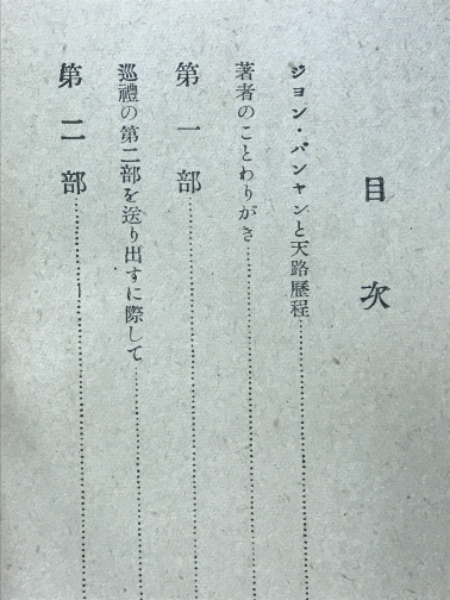 目次
ジョン・バンヤンと天路歷程
著者のことわりがき
第一部
巡禮の第二部を送り出すに際して
第二部